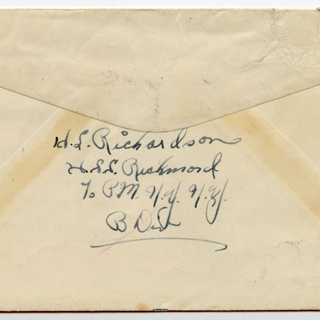 H. L. Richardson
U.S.S. Richmond
℅ P.M. N.Y. N.Y.
B Div